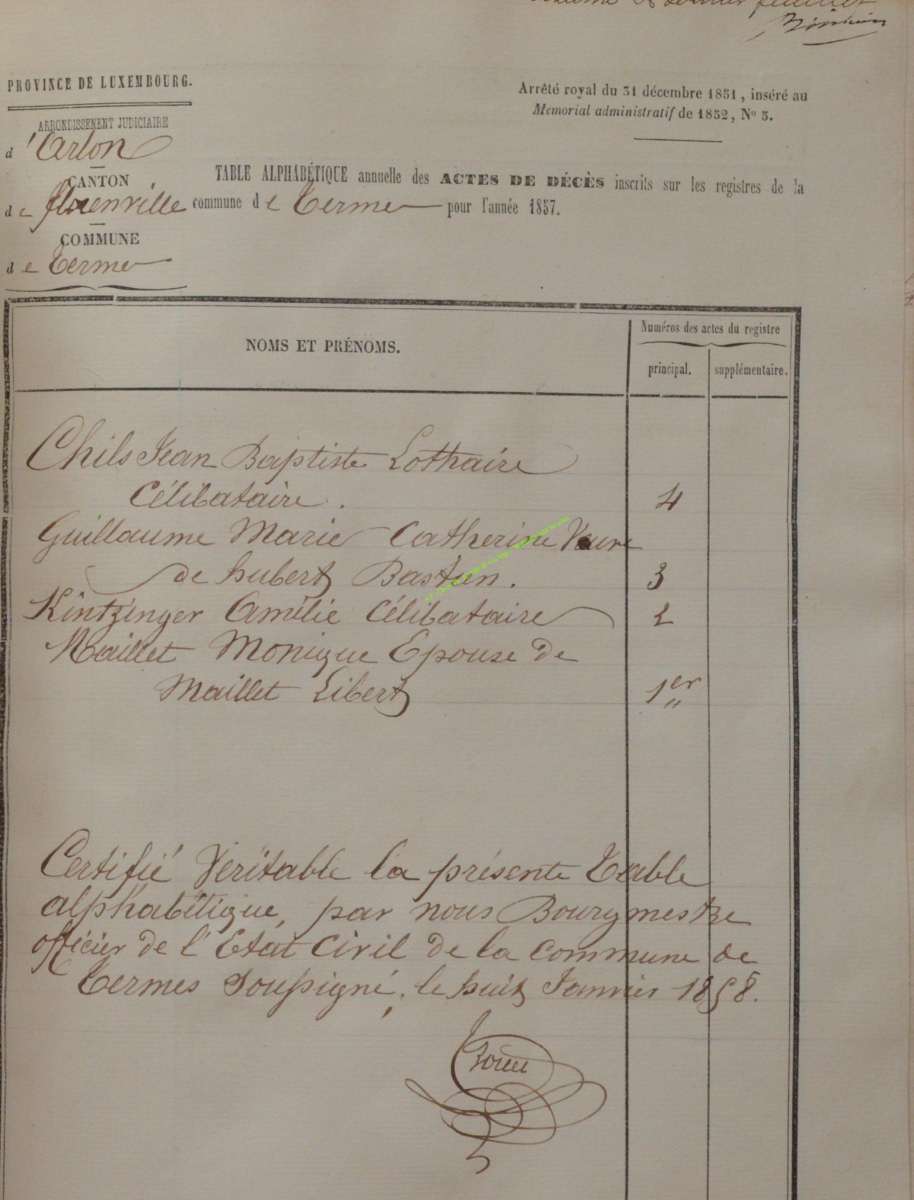 dernier feuillet
PROVINCE DE LUXEMBOURG.
ARRONDISSEMENT JUDICIAIRE
d'Arlon
CANTON
de florenville
COMMUNE
de Termes
Arrêté royal du 31 décembre 1851, inséré au
Memorial administratif de 1852, N° 5.
TABLE ALPHABÉTIQUE annuelle des ACTES DE DÉCÈS inscrits sur les registres de la
commune de Termes pour l'année 1857.
NOMS ET PRÉNOMS.
Numéros des actes du registre
principal. supplémentaire.
Chils Jean Baptiste Lothaire
Célibataire. 4
Guillaume Marie Catherine Veuve
de hubert Bastien. 3
Kintzinger Amélie Célibataire 2
Maillet Monique Epouse de
Maillet Libert 1er
Certifié Véritable la présente Table
alphabétique, par nous Bourgmestre
officier de l'Etat Civil de la commune de
Termes Soussigné, le huit Janvier 1858.